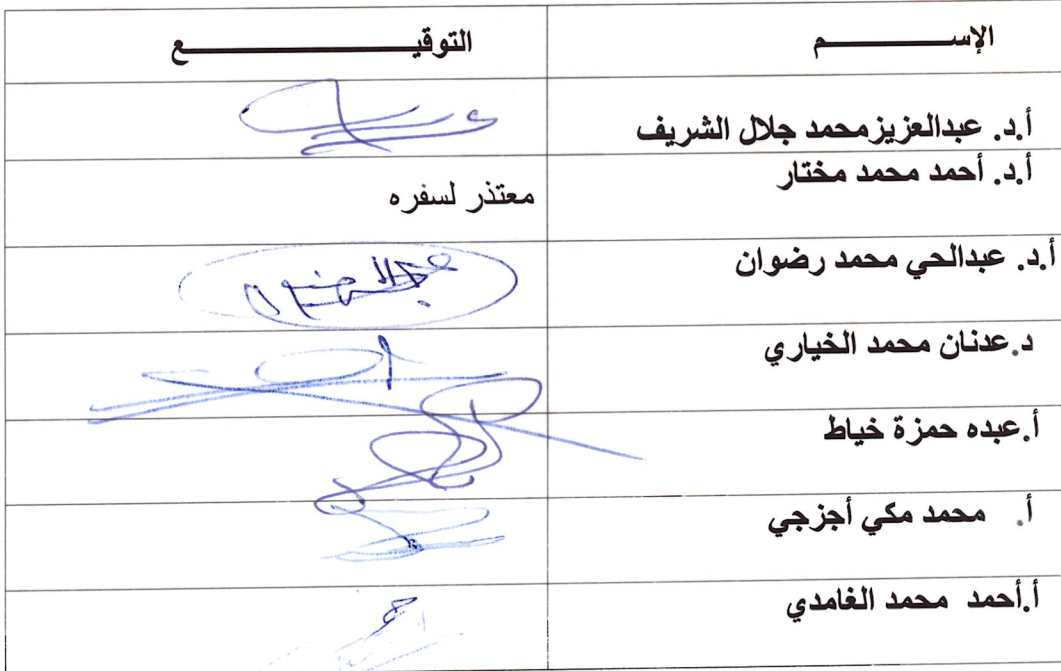 الإســــــــم التوقيـــــــــــــع
أ.د. عبدالعزيزمحمد جلال الشريف
أ.د. أحمد محمد مختار معتذر لسفره
أ.د. عبدالحي محمد رضوان
د.عدنان محمد الخياري
أ.عبده حمزة خياط
أ. محمد مكي أجزجي
أ.أحمد محمد الغامدي